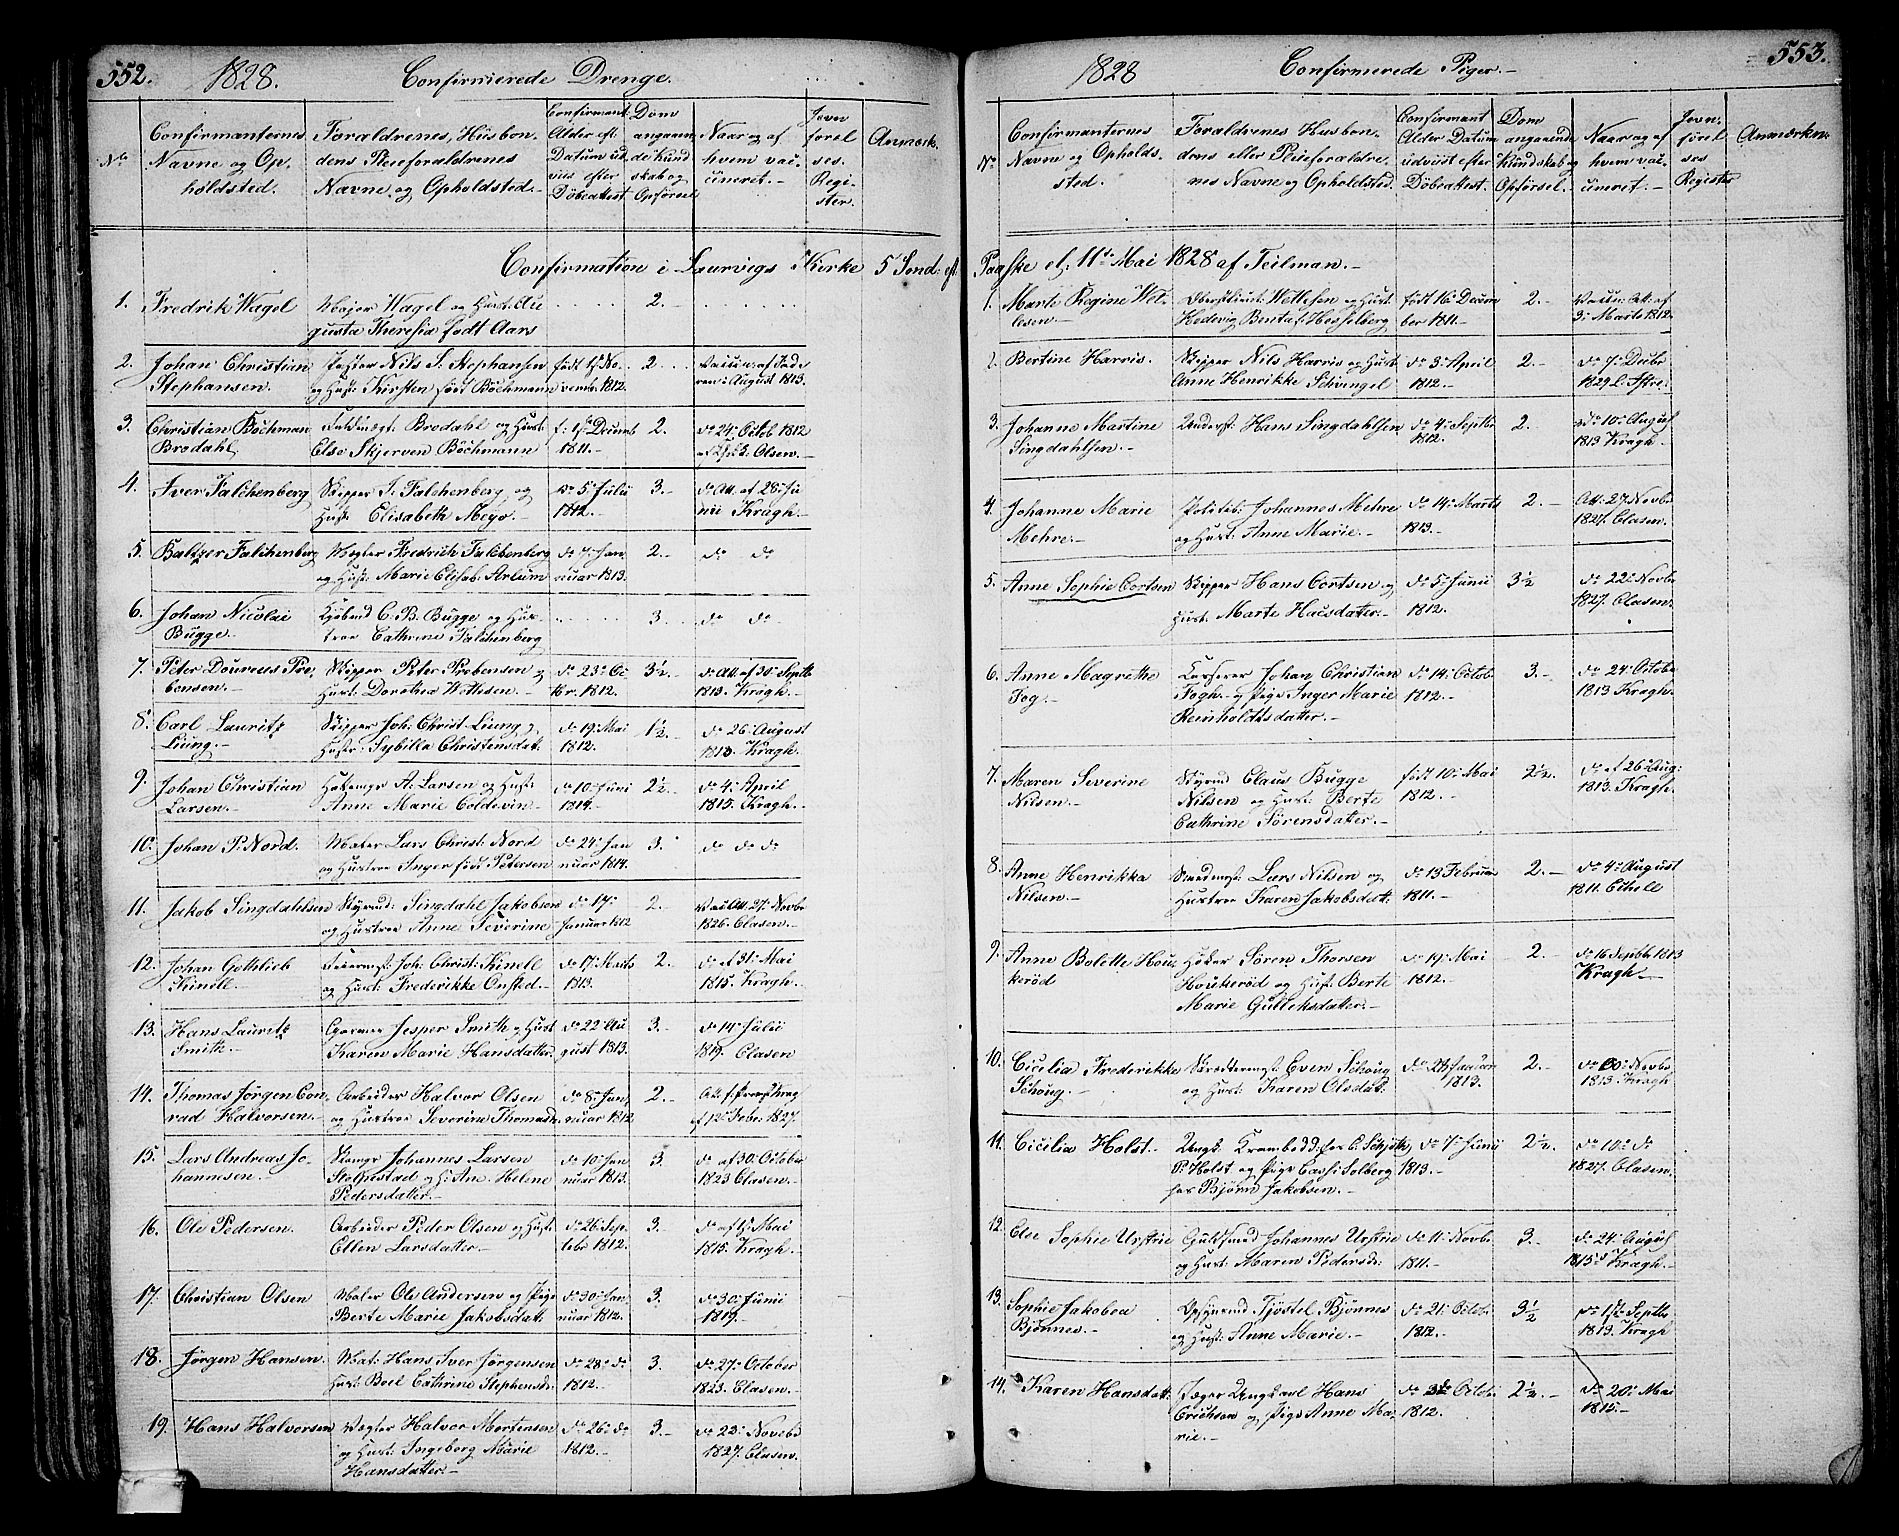 552.
1828.
Confirmerede Drenge.
No
Confirmanternes
Navne og Op-
holdsted.
Foraldrenes, Husbon-
dens Pleieforaldrenes
Navne og Opholdsted
Confirmant
Alder eft
Datum ud
viist efter
Döbeattest
Dom
angaaen
de Kund
skab og
Opførsel
Naar og af
hvem vac-
cineret.
Joven
forel
ses.
Regi-
ster.
Anmærk.
Confirmation i Laurvigs Kirke 5 Sönd: eft
1. Fredrik Wagel
Major Wagel og Hust: Au
gusta Theresia født Aars
2.
2. Johan Christian
Stephansen.
Nils S. Stephansen
og Hust: Kirsten født Böchmann
født 1ste No-
vembr. 1812.
2.
August 1813.
3. Christian Böchman
Brodahl
Brodahl og Hust:
Else Skjerven Böchmann
f: 1ste Decemb
1811.
2.
do 24: Octob 1812
Olsen.
4. Iver Falchenberg
Skipper J: Falchenberg, og
Hust: Elisabeth Meyo.
do 5: Julii
1812.
3.
do Att. af 28: Ju
nii Kragh.
5. Baltzer Falchenberg
Fredrich Falchenberg
og Hust: Marie Elisab: Arlum
do 7: Jan
nuar 1813.
2.
do do
6. Johan Nicolai
Bugge.
Kjøbmd C. B. Bugge og Hus-
troe Cathrine Falchenberg
3.
do do
7. Peter Doureus Pre-
bensen.
Skipper Peter Prebensen og
Hust: Dorothea Wethsen.
do 23: Oc
tbr. 1812.
3½.
do Att. af 30: Septb
1813. Kragh.
8. Carl Lauritz
Liung.
Skipper Joh: Christ: Liung og
Hust: Sybilla Christensdat:
do 19: Mai
1812.
1½.
do 26: August
1813. Kragh.
9. Johan Christian
Larsen.
A: Larsen og Hust:
Anne Marie Coldevin.
do 10: Juni
1814.
2½.
do 4: April
1815. Kragh.
10. Johan P: Nord.
Lars Christ: Nord
og Hustroe Inger født Petersen
do 24: Jan
nuar 1814.
3.
do do do
11. Jakob Singdahlsen
Styrmd: Singdahl Jakobsen
og Hustroe Anne Severine
do 17:
Januar 1812
2.
Vac: Att. 27: Novbr
1826. Clasen.
12. Johan Gottlieb
Kindt.
Joh: Christ: Kindt
og Hust: Frederikke Onsted.
do 17: Marts
1813.
2.
do af 31: Mai
1815. Kragh.
13. Hans Lauritz
Smith.
Jesper Smith og Hust
Karen Marie Hansdatter.
do 22: Au
gust 1813.
3.
do 14: Julii
1819. Clasen
14. Thomas Jörgen Con
rad Halvorsen.
Arbeider Halvor Olsen
og Hustroe Severine Thomasdr.
do 8: Jan
nuar 1812
2.
af 12: Febr. 1827.
15. Lars Andreas Jo-
hannesen.
Johannes Larsen
og H: Ane Helene
Pedersdatter.
do 10: Jan
nuar 1813.
3.
do af 30: October
1823 Clasen.
16. Ole Pedersen.
Arbeider Peder Olsen og Hust:
Ellen Larsdatter.
do 26: Sep-
tebr 1812.
3.
do af 1ste Mai
1815. Kragh.
17. Christian Olsen
Ole Andersen og Pige
Berte Marie Jakobsdat:
do 30: Jan
nuar 1812.
3.
do 30: Junii
1819.
18. Jörgen Hansen.
Mat: Hans Iver Jörgensen
Hust: Boel Cathrine Stephensdr:
do 28: do
1812.
3.
do 27: October
1823. Clasen.
19. Hans Halvorsen
Halvor Mortensen
og Hust: Ingeborg Marie
Hansdatter.
do 26: do
1812.
3.
do 22: Novebr
1827. Clasen.
553.
1828
Confirmerede Piger.
No
Confirmanternes
Navne og Opholds-
sted.
Foraldrenes Husbon-
dens eller Pleieforaldre-
nes Navne og Opholdsted.
Confirmant
Alder Datum
udviist efter
Döbeattest.
Dom
angaaende
Kundskab og
Opførsel.
Naar og af
hvem vac-
cineret.
Joven
førel
ses
Register
Anmærkn:
Paaske d: 11te Mai 1828 af Teilman.
1. Marte Regine Wet-
lesen.
Oberstlieut: Wettesen og Hust:
Hedevig Benta f: Hesselberg
født 16: Decem
ber 1811.
2.
Vaccin: Att. af
3: Marts 1812.
2. Bertine Harris.
Skipper Nils Harris og Hust:
Anne Henrikke Schvingel
do 3: April
1812.
2.
do 7: Decbr
3. Johanne Martine
Singdahlsen.
Hans Singdahlsen
do 4: Septbr
1812.
2.
do 10: August
1813 Kragh.
4. Johanne Marie
Mehre.
Politib: Johannes Mehre
og Hust: Anne Marie.
do 14: Marts
1813.
2.
Att: 27. Novbr
1827. Clasen.
5. Anne Sophie Cortsen
Skipper Hans Cortsen og
Hust: Marte Haisdatter.
do 5: Junii
1812.
3½
do 22: Novbr
1827. Clasen.
6. Anne Magrethe
Fog.
Johan Christian
Fogh. og Pige Inger Marie
Reinholdtsdatter.
do 14: Octob
1812.
3.
do 24: October
1813 Kragh.
7. Maren Severine
Nilsen.
Styrmd Claus Bugge
Nilsen og Hust: Berte
Cathrine Sörensdatter.
født 10: Mai
1812.
2½.
do af 26: Aug:
1813. Kragh.
8. Anne Henrikka
Nilsen.
Lars Nilsen og
Hustroe Karen Jakobsdat:
do 13 Februar
1811.
2.
do 4: August
1811.
9. Anne Bolette Hou-
keröd
Höker Sören Thorsen
Houkeröd og Hust: Berte
Marie Gulliksdatter.
do 19: Mai
1812.
2.
do 16 Septbr 1813
Kragh.
10. Cicilia Frederikke
Schöug.
Even Schöug
og Hust: Karen Olsdat:
Januar
1813.
2.
Novbr
1813 Kragh
11. Cicilia Holst.
P. Holst og Pige
hos Björn Jakobsen.
do 7: Junii
1813.
2½.
do 10: do
1827. Clasen.
12. Else Sophie Urstrie
Guldsmed Johannes Urstrie
og Hust: Maren Pedersdr:
do 11: Novbr
1811.
3.
do 24: August
1815 Kragh.
13. Sophie Jakobea
Bjönnes.
Tjostel Bjönnes
og Hust: Anne Marie.
do 21: Octbr
1812.
3½
do 1ste Septbr
1813. Kragh
14. Karen Hansdatt:
Hans
Erichsen og Pige Anne Ma-
rie.
Octbr
1812.
2½.
do 20: Mai
1815.